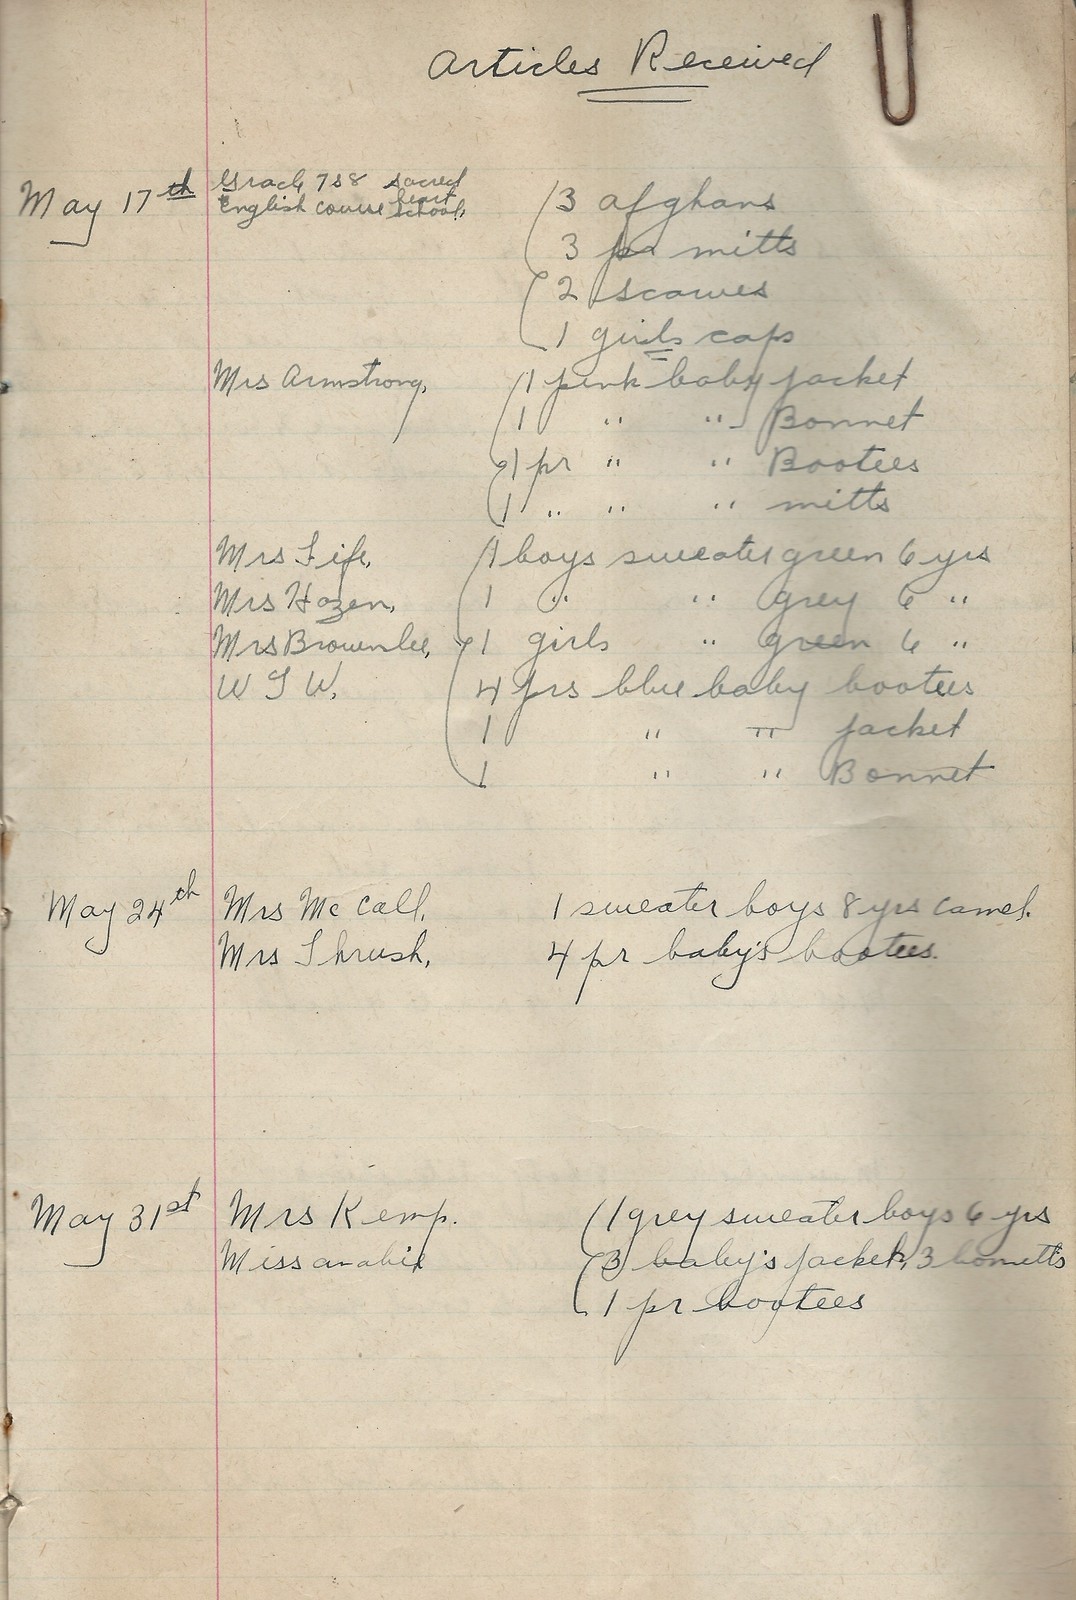 Articles Received
May 17th Grade 7 & 8 Sacred
English course heart school, 3 afghans
3 pr mitts
2 scarves
1 girls caps
Mrs Armstrong, 1 pink baby jacket
1 " " Bonnet
1 pr " " Bootees
1 " " " mitts
Mrs Fife, 1 boys sweater green 6 yrs
Mrs Hazen, 1 " " grey 6 "
Mrs Brownlee, 1 girls " green 6 "
4 prs blue baby bootees
1 " " jacket
1 " " Bonnet
May 24th Mrs McCall, 1 sweater boys 8 yrs camel.
Mrs Thrush, 4 pr baby's bootees.
May 31st Mrs Kemp. 1 grey sweater boys 6 yrs
Miss 3 baby's jacket, 3 bonnetts
1 pr bootees